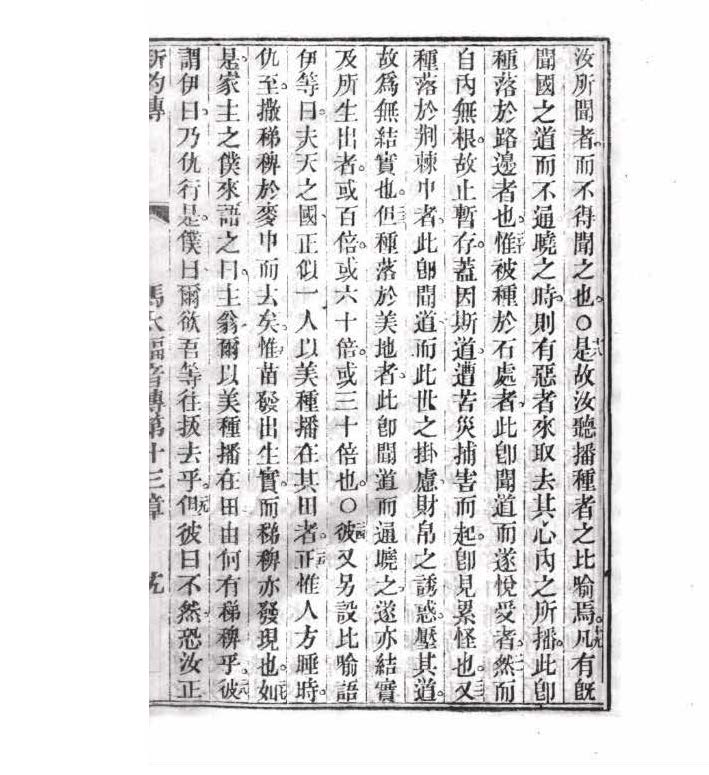 汝所聞者而不得聞之也○十八是故汝聽播種者之比喻焉十九凡有旣
聞國之道而不通曉之時則有惡者來取去其心內之所播此卽
種落於路邊者也二十惟被種於石處者此卽聞道而遂悅受者二一然而
自內無根故止暫存蓋因斯道遭苦災捕害而起卽見累怪也二二又
種落於荆棘中者此卽聞道而此世之掛慮財帛之誘惑壓其道
故爲無結實也二三但種落於美地者此卽聞道而通曉之遂亦結實
及所生出者或百倍或六十倍或三十倍也○二四彼又另設比喻語
伊等曰夫天之國正似一人以美種播在其田者二五正惟人方睡時
仇至撒稊稗於麥中而去矣二六惟苗發出生實而稊稗亦發現也二七如
是家主之僕來語之曰主翁爾以美種播在田由何有稊稗乎二八彼
謂伊曰乃仇行是僕曰爾欲吾等往拔去乎二九但彼曰不然恐汝正
新約傳 馬太福音傳第十三章